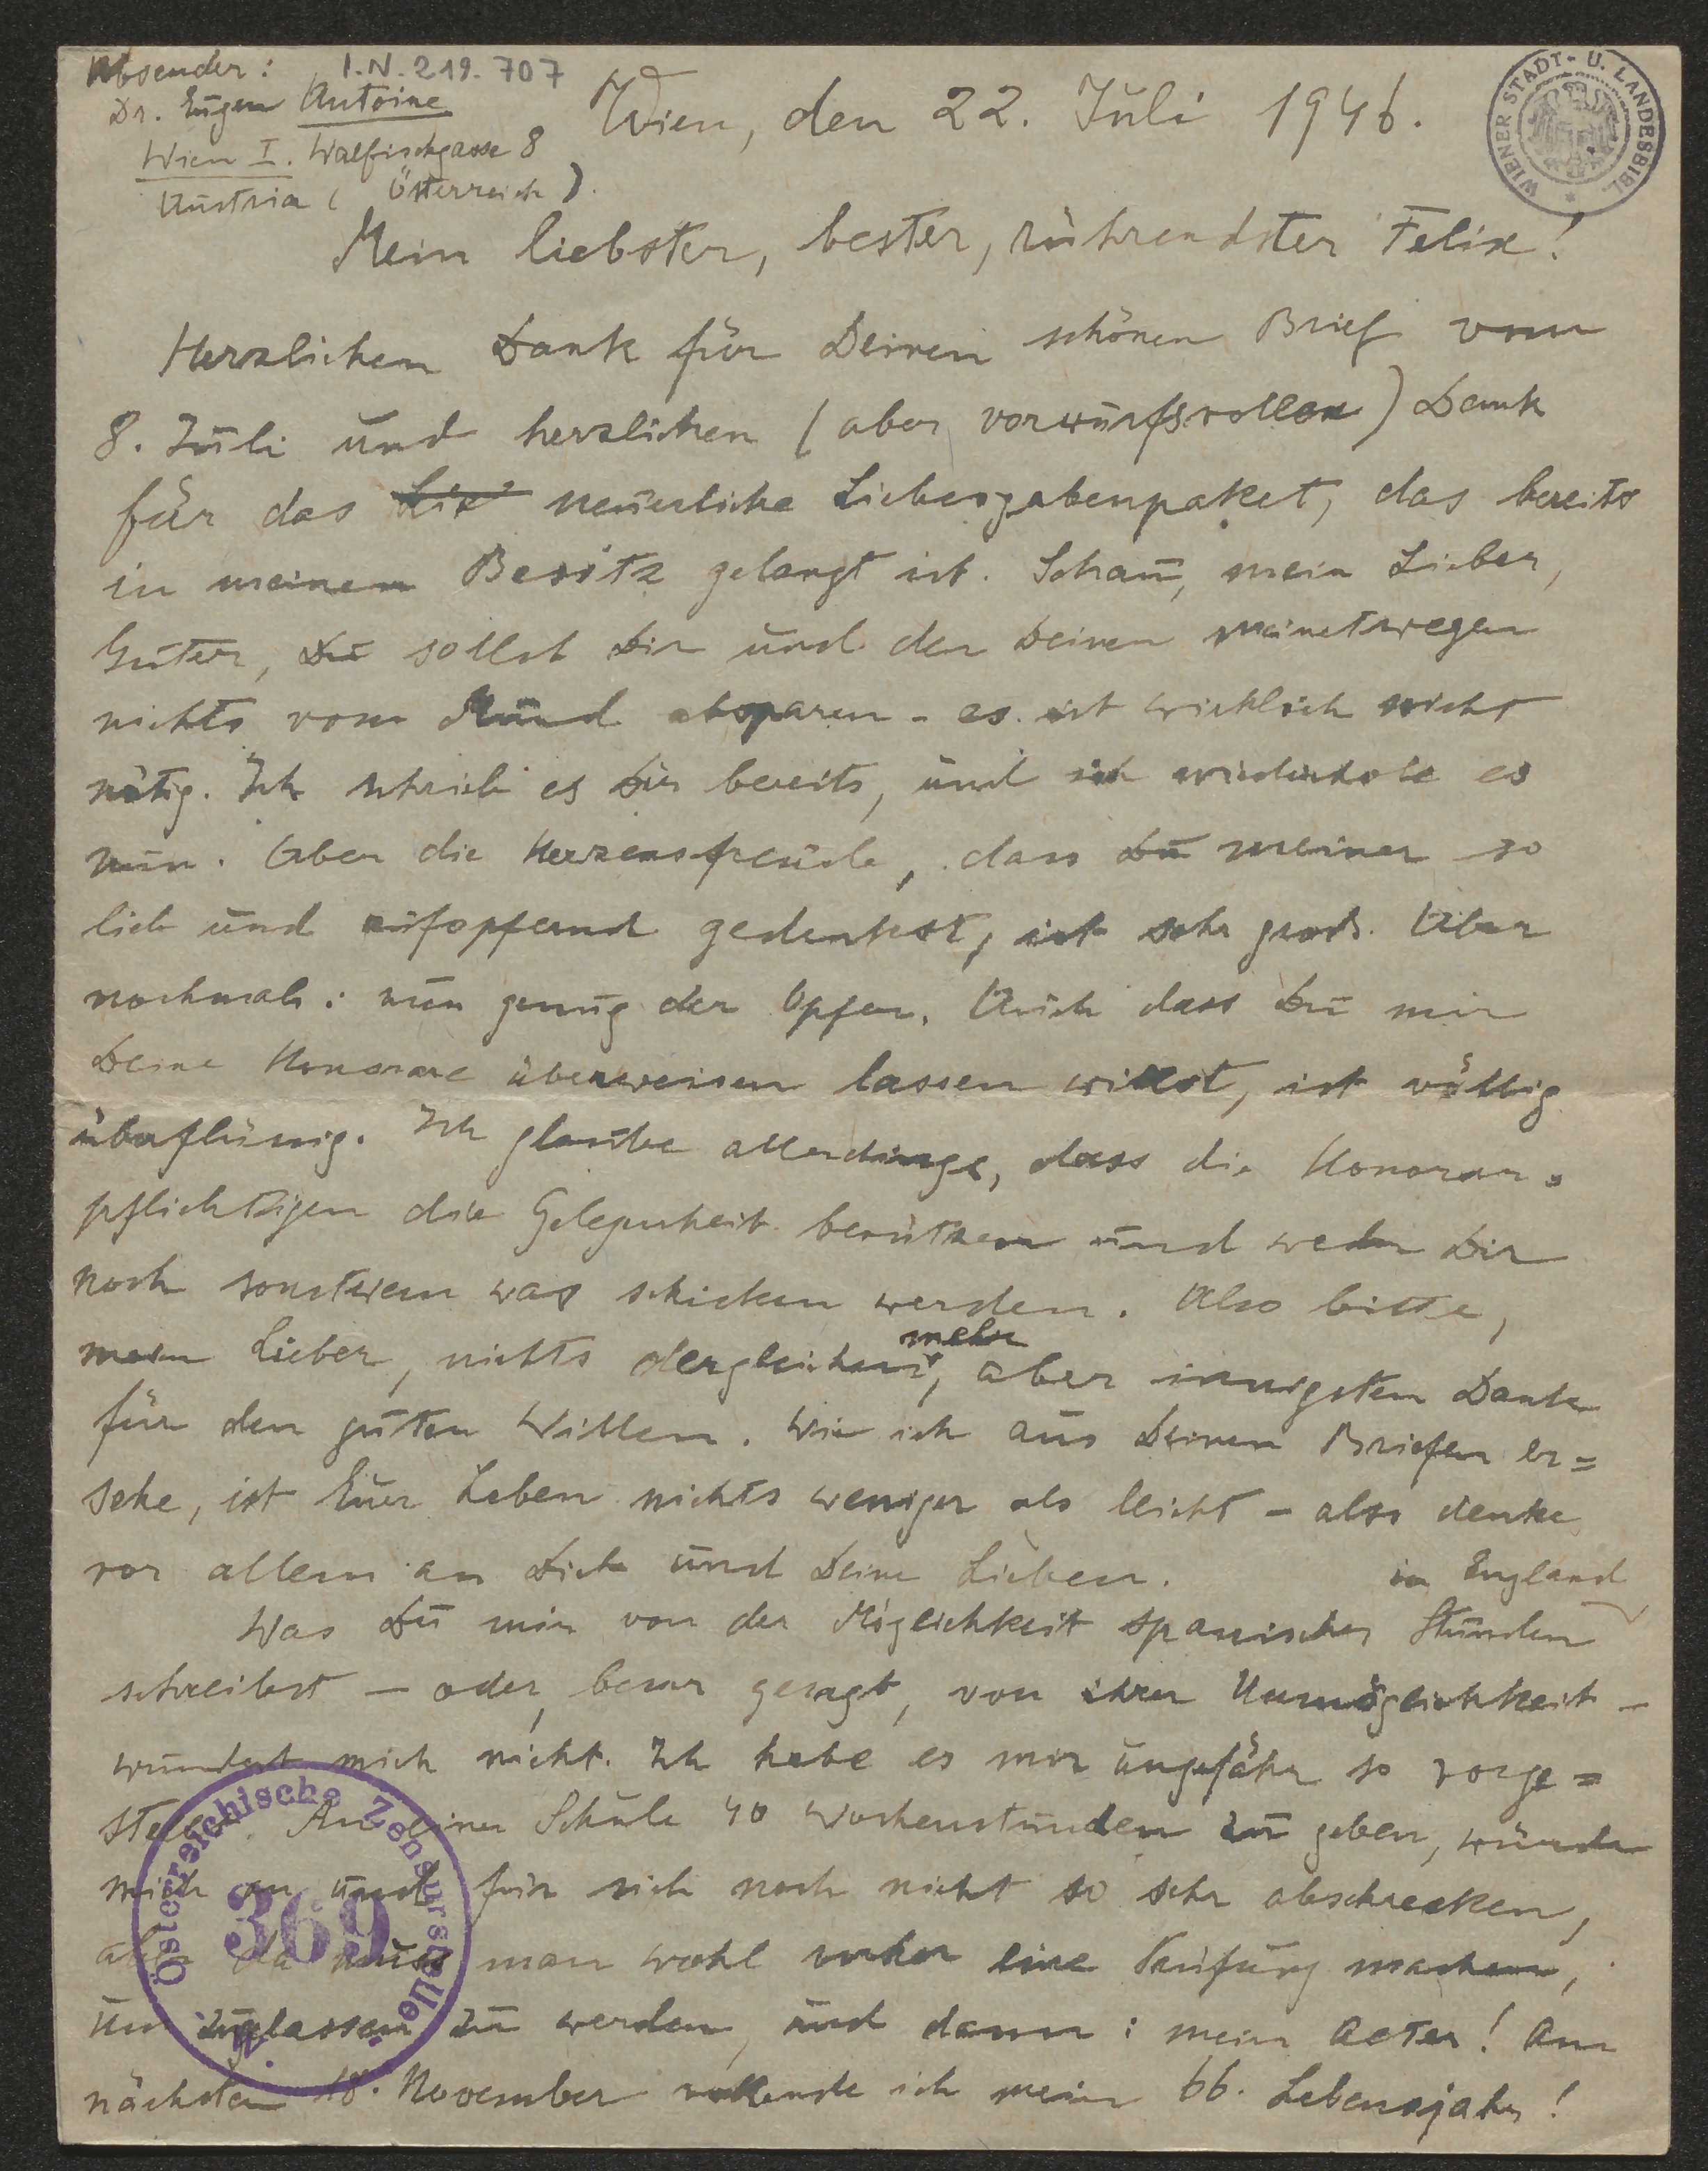 Absender: I.N. 219.707
Dr. Eugen Antoine
Wien I. Walfischgasse 8
Austria (Österreich).
WIENER STADT- U. LANDESBIBL.
Wien, den 22. Juli 1946.
Mein liebster, bester, rührendster Felix!
Herzlichen Dank für Deinen schönen Brief vom
8. Juli und herzlichen (aber vorwurfsvollen) Dank
für das neuerliche Liebesgabenpaket, das bereits
in meinen Besitz gelangt ist. Schau, mein Lieber,
Guter, Du sollst Dir und den Deinen meinetwegen
nichts vom Mund absparen - es ist wirklich nicht
nötig. Ich schrieb es Dir bereits, und ich wiederhole es
nun. Aber die Herzensfreude, dass Du meiner so
lieb und aufopfernd gedenkst, ist sehr gross. Aber
nochmals: nun genug der Opfer. Auch dass Du mir
Deine Honorare überweisen lassen willst, ist völlig
überflüssig. Ich glaube allerdings, dass die Honorar-
pflichtigen die Gelegenheit benützen und weder Dir
noch sonstwem was schicken werden. Also bitte,
mein Lieber, nichts dergleichen mehr, aber innigsten Dank
für den guten Willen. Wie ich aus Deinen Briefen er=
sehe, ist Euer Leben nichts weniger als leicht - also denke
vor allem an Dich und Deine Lieben.
Was Du mir von der Möglichkeit spanischer Stunden in England
schreibst - oder, besser gesagt, von ihrer Unmöglichkeit -
wundert mich nicht. Ich habe es mir ungefähr so vorge=
stellt. An einer Schule 40 Wochenstunden zu geben, würde
mich an und für sich noch nicht so sehr abschrecken,
aber da muss man wohl vorher eine Prüfung machen,
um zugelassen zu werden, und dann: mein Alter! Am
nächsten 18. November vollende ich mein 66. Lebensjahr!
Österreichische Zensurstelle
369